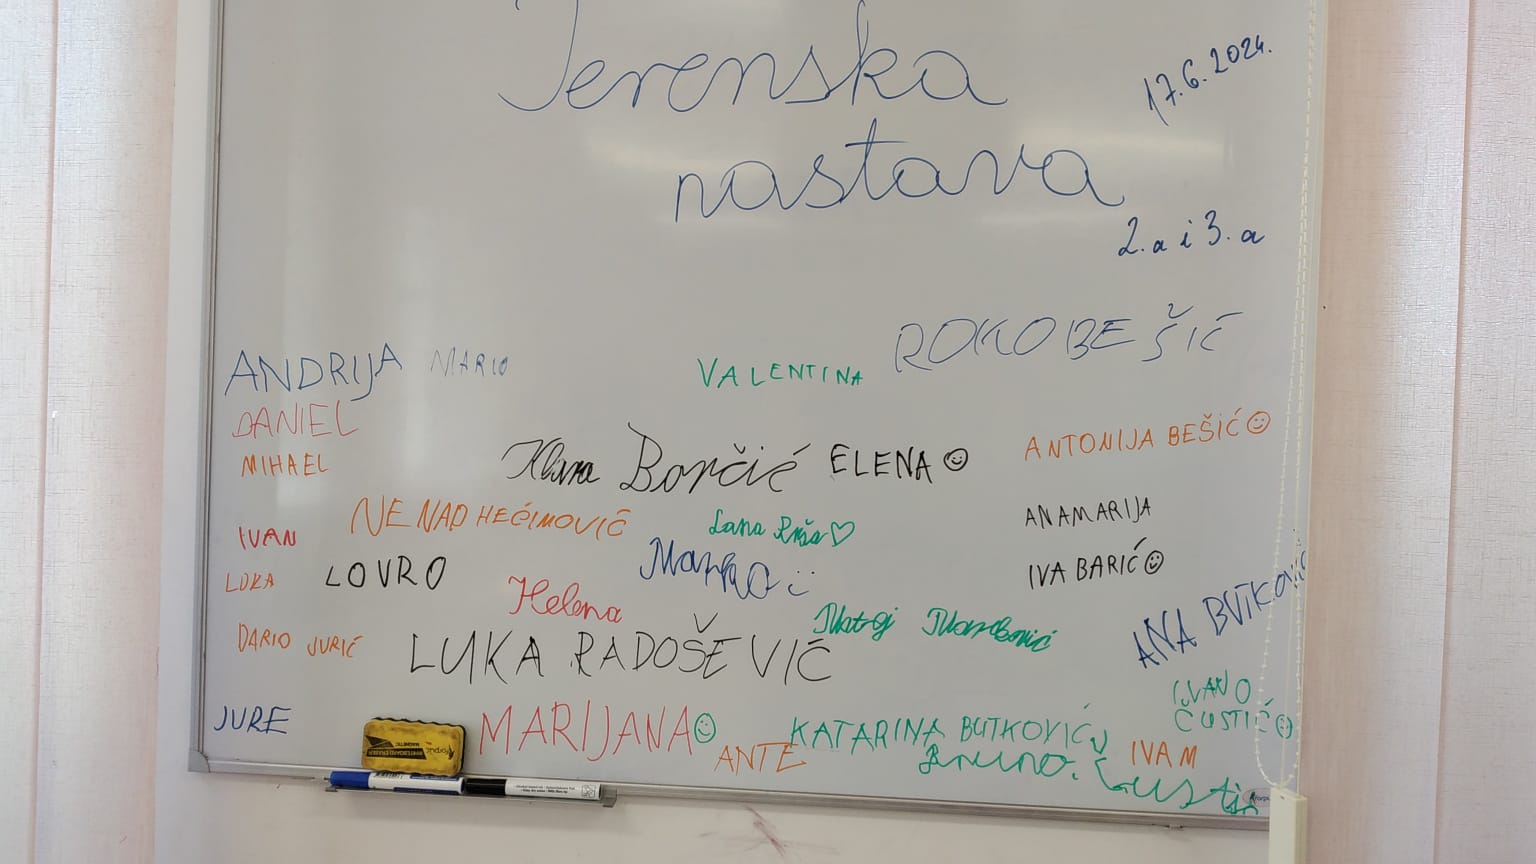 Terenska
nastava
17.6.2024.
2.a i 3.a
ANDRIJA MARIO
VALENTINA
ROKO BEŠIĆ
DANIEL
MIHAEL
Klara Borčić ELENA
ANTONIJA BEŠIĆ
NENAD HEĆIMOVIĆ
Lana
ANAMARIJA
IVAN
LUKA LOVRO
Marko
IVA BARIĆ
Helena
Matej
ANA BUTKOVIĆ
DARIO JURIĆ
LUKA RADOŠEVIĆ
IVANO
ČUSTIĆ
JURE
MARIJANA
ANTE
KATARINA BUTKOVIĆ
Bruno.
IVAM
WHITEBOARD ERASER
MAGNETIC